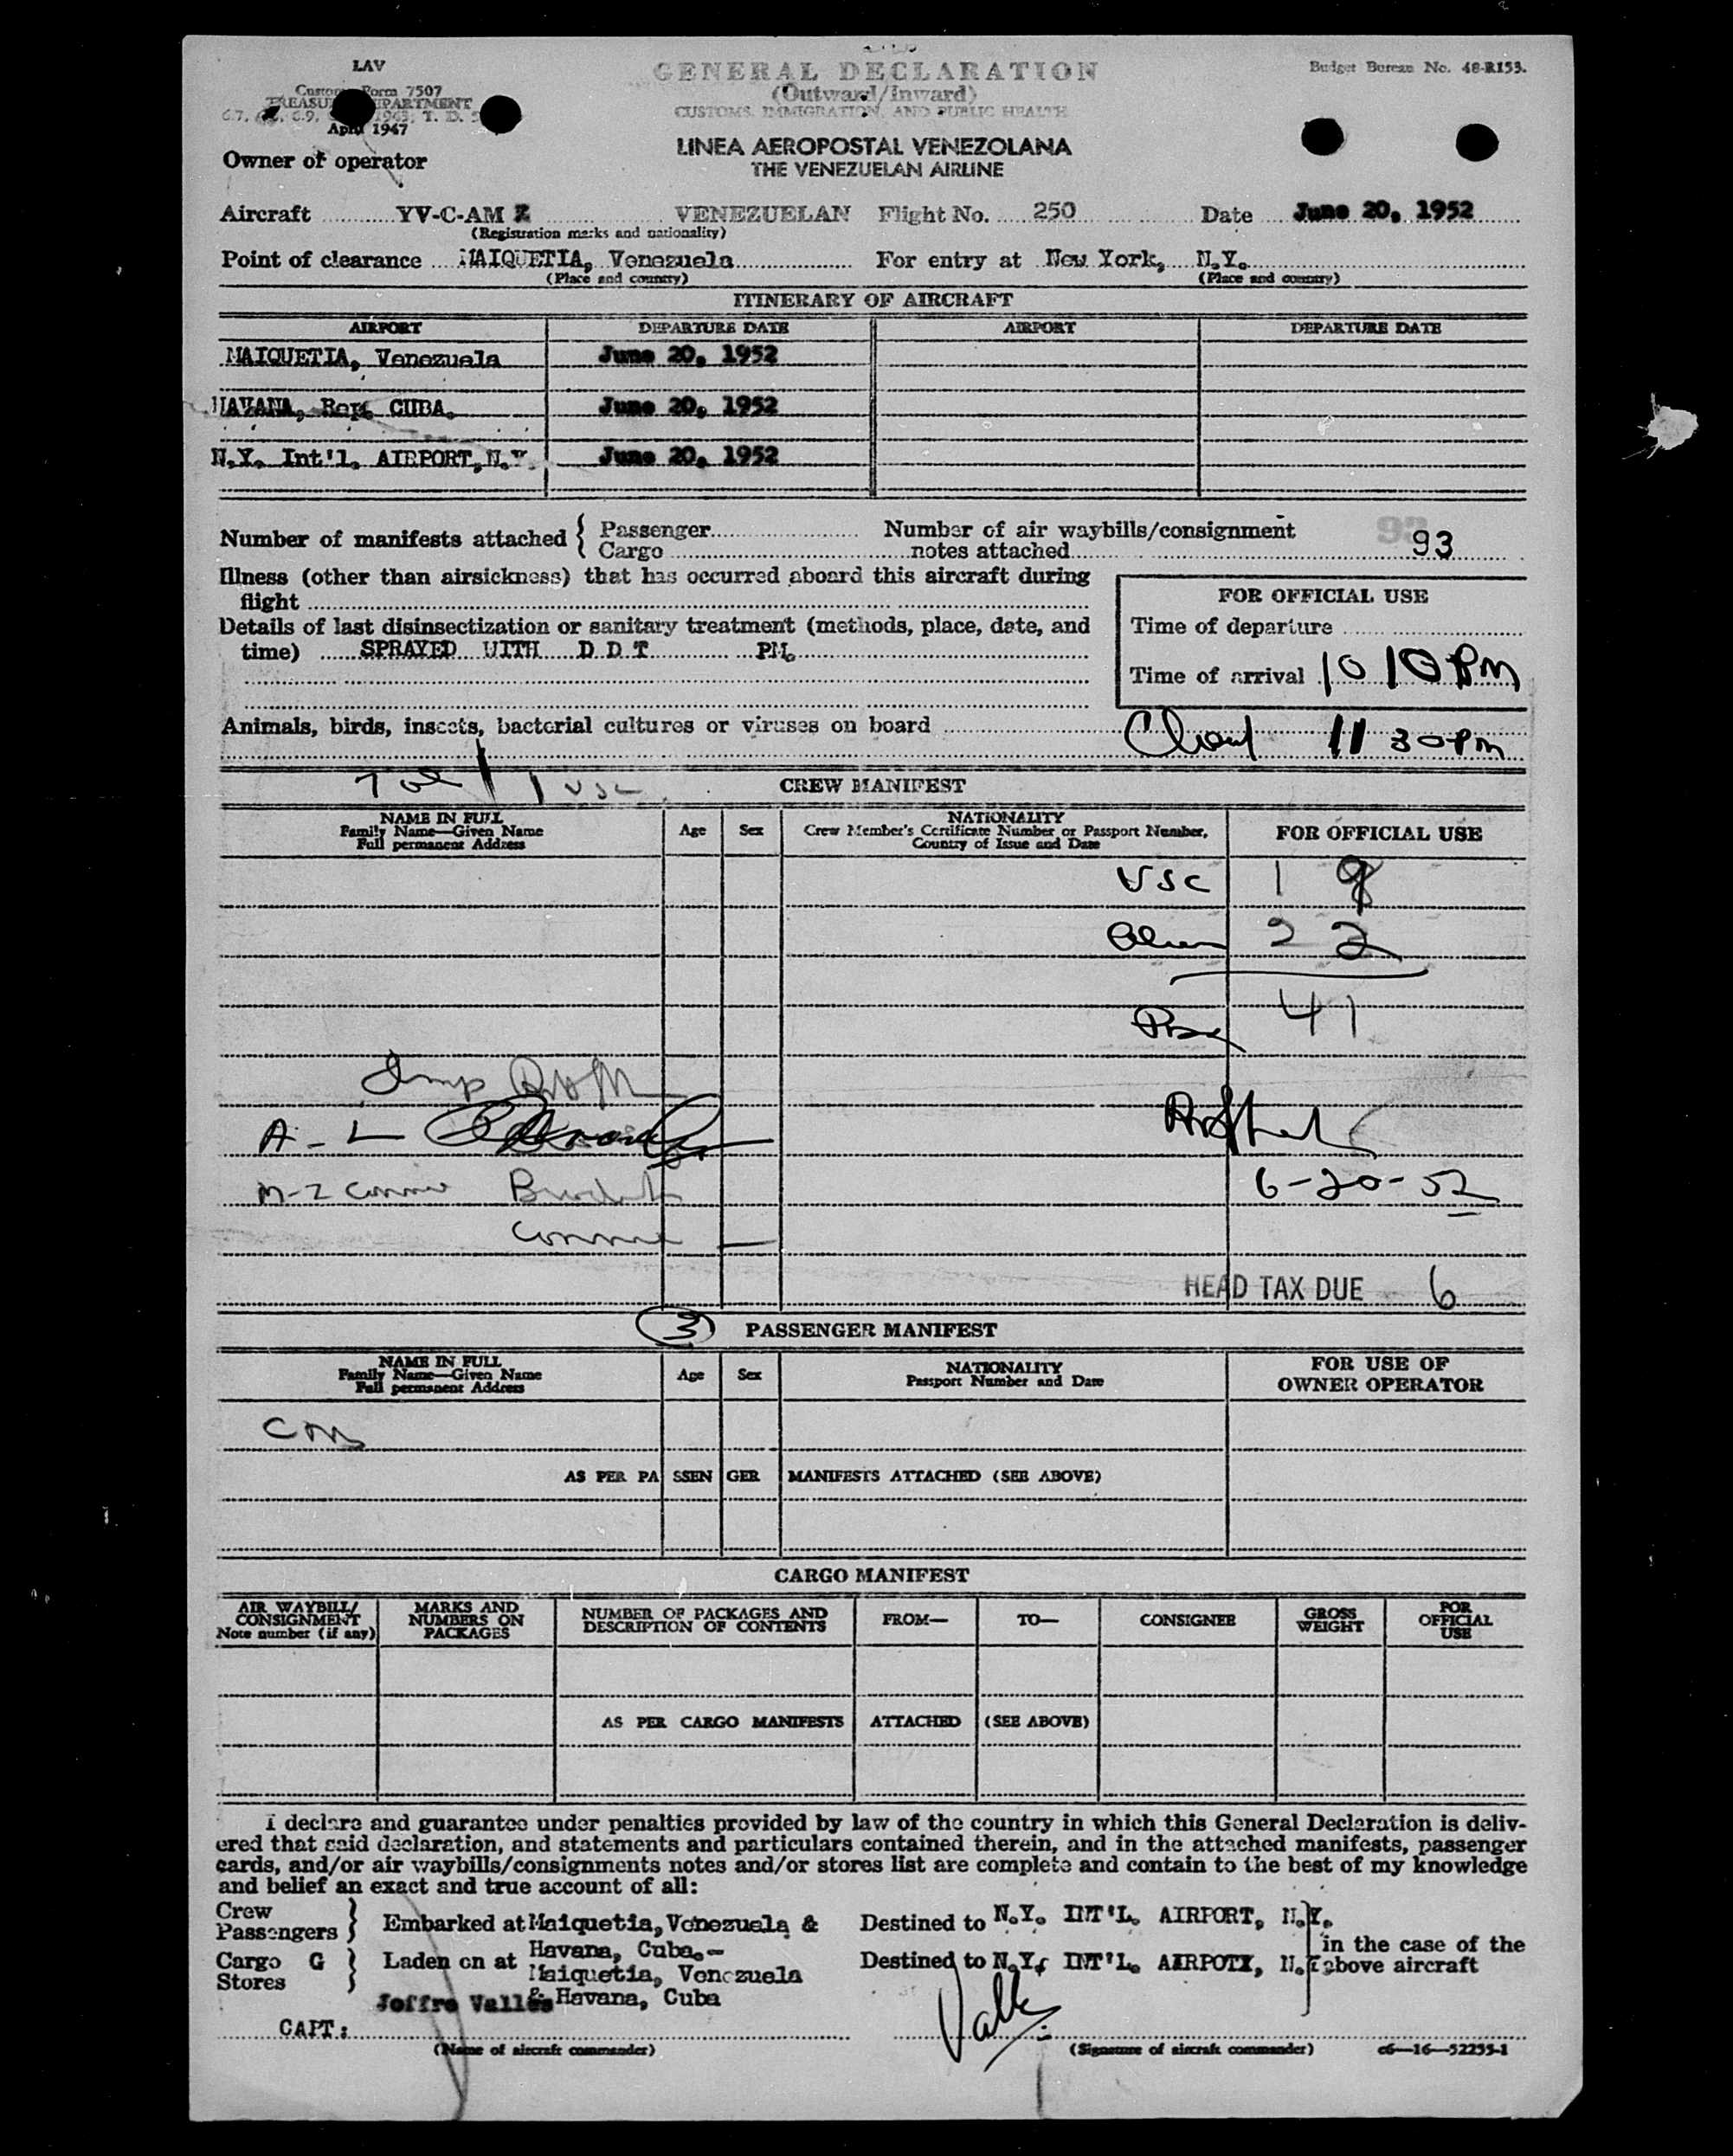 LAV
Customs Form 7507
TREASURY DEPARTMENT
April 1947
GENERAL DECLARATION
(Outward/Inward)
CUSTOMS, IMMIGRATION, AND PUBLIC HEALTH
Budget Bureau No. 48-R153.
LINEA AEROPOSTAL VENEZOLANA
THE VENEZUELAN AIRLINE
Owner or operator
Aircraft YV-C-AM VENEZUELAN Flight No. 250 Date June 20, 1952
(Registration marks and nationality)
Point of clearance MAIQUETIA, Venezuela For entry at New York, N.Y.
(Place and country) (Place and country)
ITINERARY OF AIRCRAFT
AIRPORT DEPARTURE DATE AIRPORT DEPARTURE DATE
MAIQUETIA, Venezuela June 20, 1952
HAVANA, Rep. CUBA. June 20, 1952
N.Y. Int'l. AIRPORT, N.Y. June 20, 1952
Number of manifests attached { Passenger Number of air waybills/consignment 93
Cargo notes attached 93
Illness (other than airsickness) that has occurred aboard this aircraft during
flight
FOR OFFICIAL USE
Details of last disinsectization or sanitary treatment (methods, place, date, and
Time of departure
time) SPRAYED WITH D D T PM.
Time of arrival 10 10 PM
Animals, birds, insects, bacterial cultures or viruses on board
11 30 PM
CREW MANIFEST
NAME IN FULL
Family Name—Given Name
Full permanent Address
Age Sex
NATIONALITY
Crew Member's Certificate Number or Passport Number,
Country of Issue and Date
FOR OFFICIAL USE
USC 1 9
Alien 2 2
Pax 41
Insp
A - L
6-20-52
HEAD TAX DUE 6
3 PASSENGER MANIFEST
NAME IN FULL
Family Name—Given Name
Full permanent Address
Age Sex
NATIONALITY
Passport Number and Date
FOR USE OF
OWNER OPERATOR
AS PER PASSENGER MANIFESTS ATTACHED (SEE ABOVE)
CARGO MANIFEST
AIR WAYBILL/
CONSIGNMENT
Note number (if any)
MARKS AND
NUMBERS ON
PACKAGES
NUMBER OF PACKAGES AND
DESCRIPTION OF CONTENTS
FROM—
TO—
CONSIGNEE
GROSS
WEIGHT
FOR
OFFICIAL
USE
AS PER CARGO MANIFESTS ATTACHED (SEE ABOVE)
I declare and guarantee under penalties provided by law of the country in which this General Declaration is deliv-
ered that said declaration, and statements and particulars contained therein, and in the attached manifests, passenger
cards, and/or air waybills/consignments notes and/or stores list are complete and contain to the best of my knowledge
and belief an exact and true account of all:
Crew
Passengers } Embarked at Maiquetia, Venezuela & Destined to N.Y. INT'L. AIRPORT, N.Y.
Havana, Cuba.- in the case of the
Cargo G } Laden on at Maiquetia, Venezuela Destined to N.Y. INT'L. AIRPOTT, N.Y above aircraft
Stores
Joffre Valles & Havana, Cuba
CAPT: Valles
(Name of aircraft commander) (Signature of aircraft commander) c6—16—52255-1